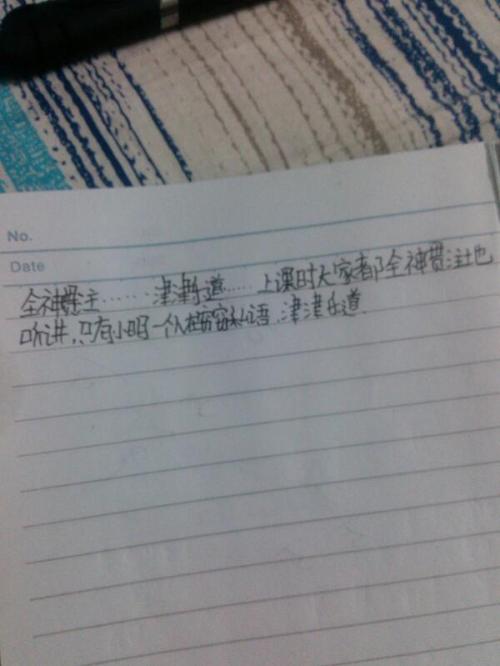 No.
Date
全神贯主……津津乐道……上课时大家都全神贯注地
听讲,只有小明一个人在窃窃私语.津津乐道.